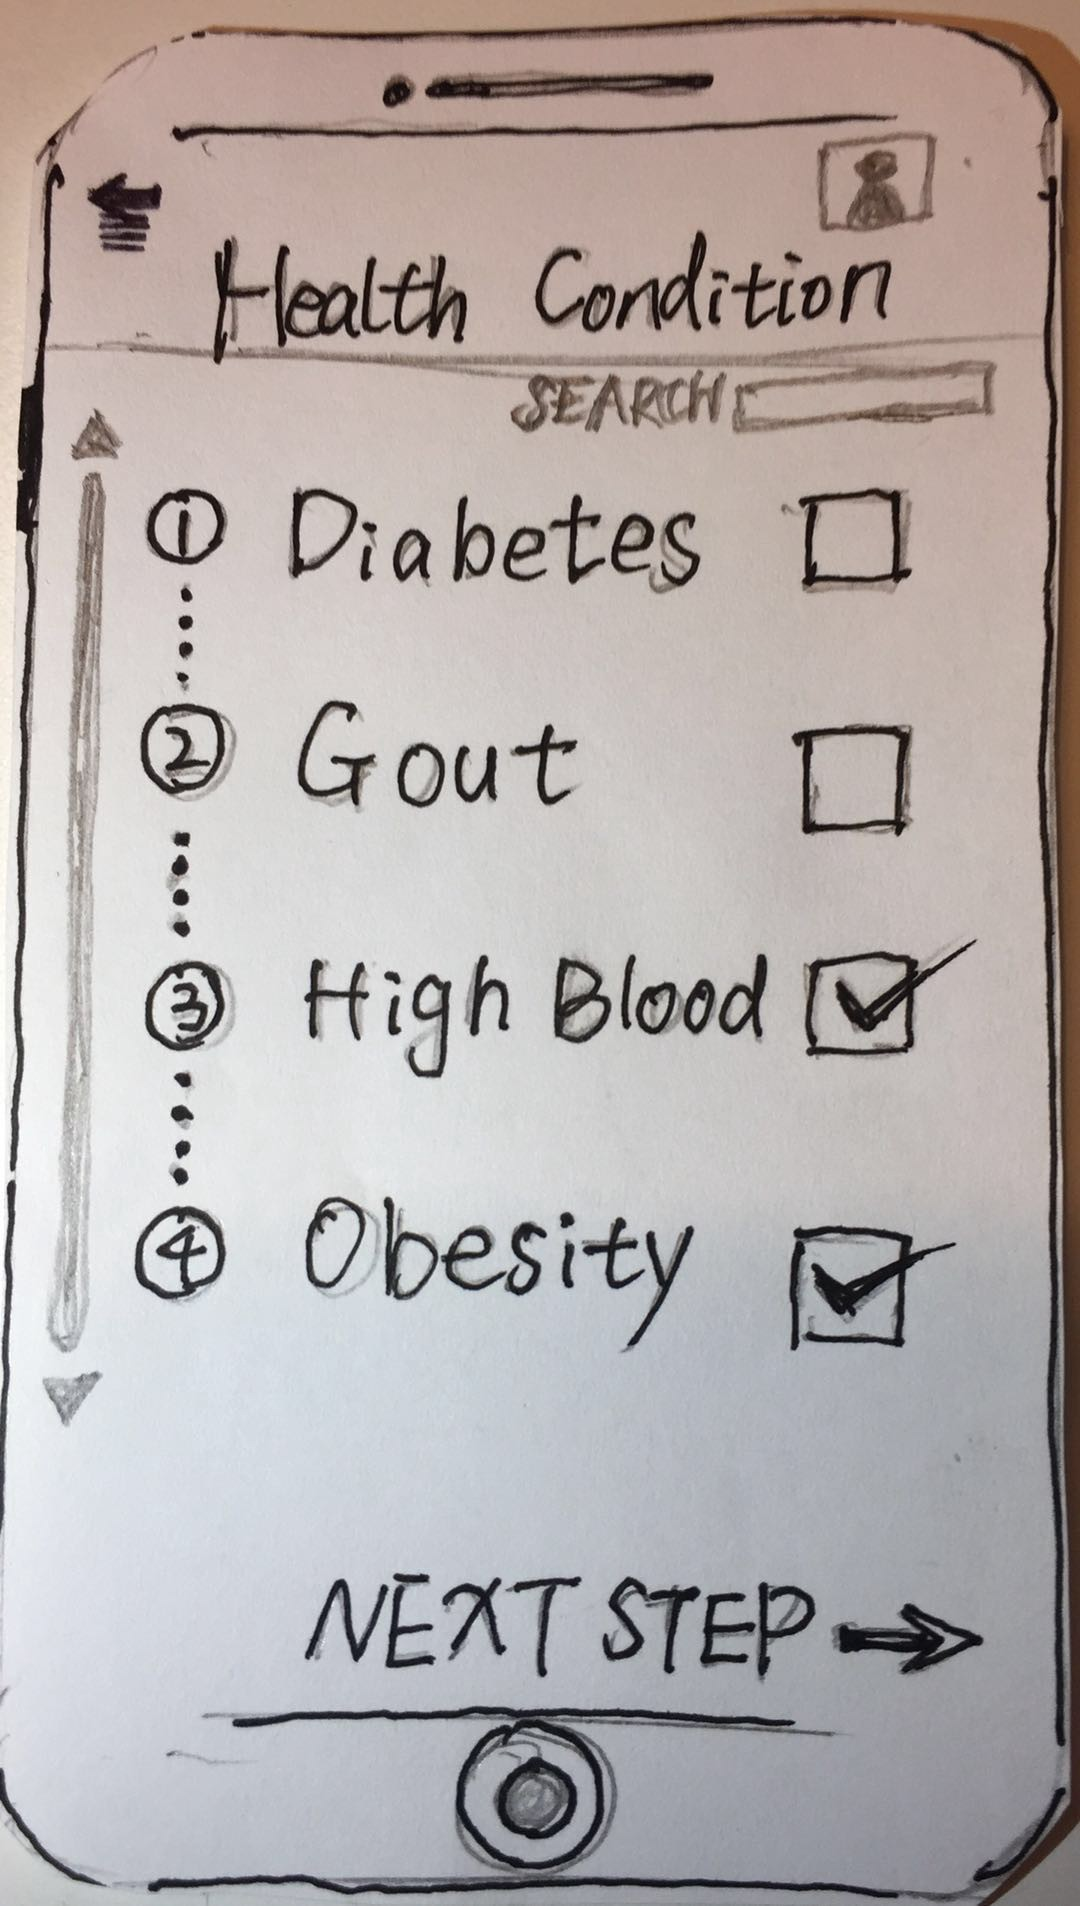 Health Condition
SEARCH
1 Diabetes
2 Gout
3 High Blood
4 Obesity
NEXT STEP